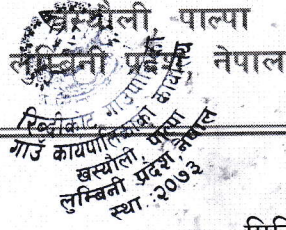 खस्यौली पाल्पा
लुम्बिनी प्रदेश, नेपाल
रिब्दीकोट गाउँपालिका
गाउँ कार्यपालिकाको कार्यालय
खस्यौली, पाल्पा
लुम्बिनी प्रदेश नेपाल
स्था :२०७३